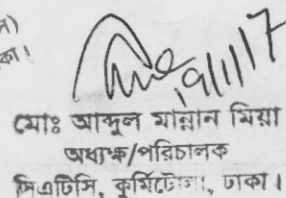 কা।
19/1/17
মোঃ আব্দুল মান্নান মিয়া
অধ্যক্ষ/পরিচালক
সিএটিসি, কুর্মিটোলা, ঢাকা।